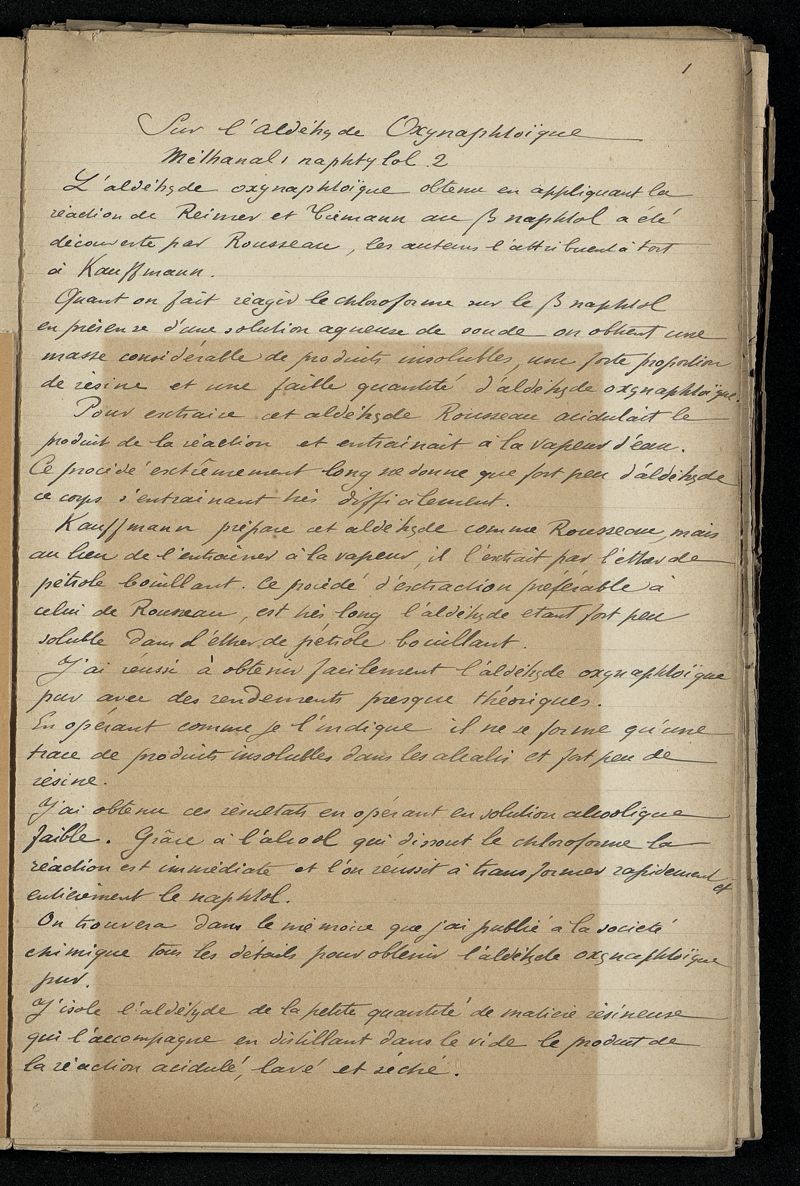 1
Sur l'aldéhyde Oxynaphtoïque
Méthanal 1 naphtylol 2
L'aldéhyde oxynaphtoïque obtenu en appliquant la
réaction de Reimer et Tiemann au β naphtol a été
découverte par Rousseau, les auteurs l'attribuent à tort
à Kauffmann.
Quant on fait réagir le chloroforme sur le β naphtol
en présense d'une solution aqueuse de soude on obtient une
masse considérable de produits insolubles, une forte proportion
de résine et une faible quantité d'aldéhyde oxynaphtoïque.
Pour extraire cet aldéhyde Rousseau acidulait le
produit de la réaction et entraînait à la vapeur d'eau.
Ce procédé extrêmement long ne donne que fort peu d'aldéhyde
ce corps s'entrainant très difficilement.
Kauffmann prépare cet aldéhyde comme Rousseau, mais
au lieu de l'entrainer à la vapeur, il l'extrait par l'éther de
pétrole bouillant. Ce procédé d'extraction préférable à
celui de Rousseau, est très long l'aldéhyde etant fort peu
soluble dans l'éther de pétrole bouillant.
J'ai réussi à obtenir facilement l'aldéhyde oxynaphtoïque
pur avec des rendements presque théoriques.
En opérant comme je l'indique il ne se forme qu'une
trace de produits insolubles dans les alcalis et fort peu de
résine.
J'ai obtenu ces résultats en opérant en solution alcoolique
faible. Grâce à l'alcool qui dissout le chloroforme la
réaction est immédiate et l'on réussit à transformer rapidement et
entièrement le naphtol.
On trouvera dans le mémoire que j'ai publié à la société
chimique tous les détails pour obtenir l'aldéhyde oxynaphtoïque
pur.
J'isole l'aldéhyde de la petite quantité de matière résineuse
qui l'accompagne en distillant dans le vide le produit de
la réaction acidulé, lavé et séché.